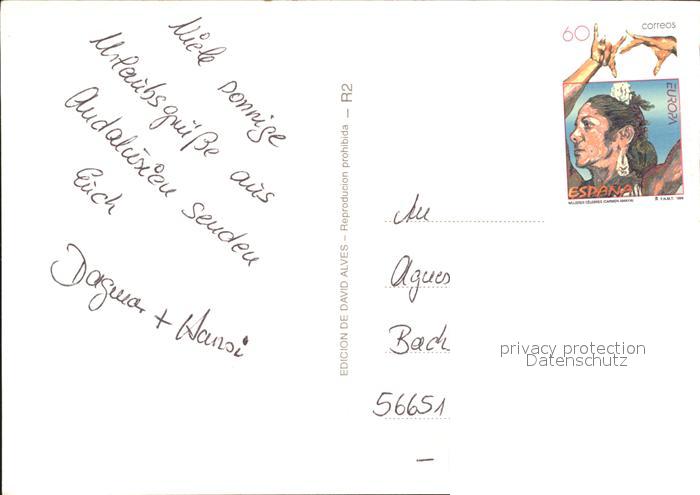 Viele sonnige
Urlaubsgrüße aus
Andalusien senden
Euch
Dagmar + Hansi
EDICION DE DAVID ALVES – Reproducion prohibida – R2
60
correos
EUROPA
ESPAÑA
MUJERES CÉLEBRES (CARMEN AMAYA)
An
Agnes
Bach
56651
privacy protection
Datenschutz